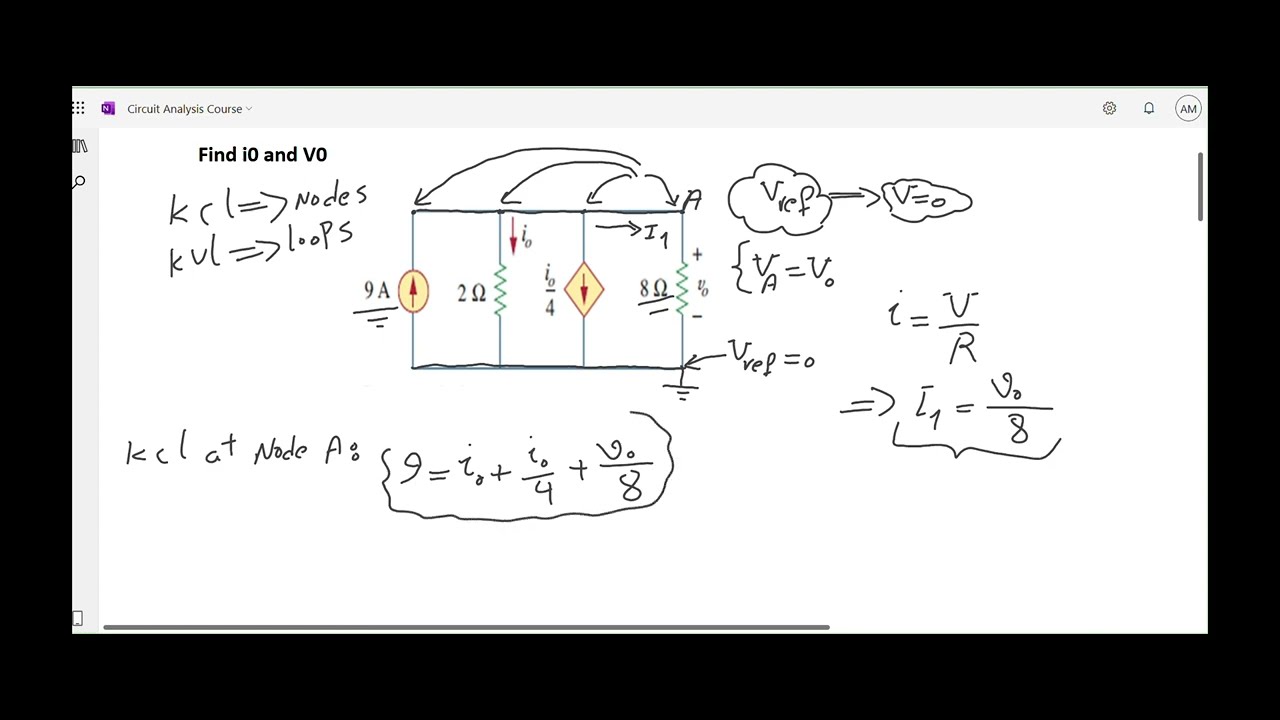 Circuit Analysis Course
AM
Find i0 and V0
kcl => Nodes
kvl => loops
A
Vref => V=0
i₀
→ I₁
{ V_A = V₀
9 A
2 Ω
i₀/4
8 Ω
+
v₀
−
i = V/R
Vref = 0
=> I₁ = V₀/8
kcl at Node A: { 9 = i₀ + i₀/4 + V₀/8